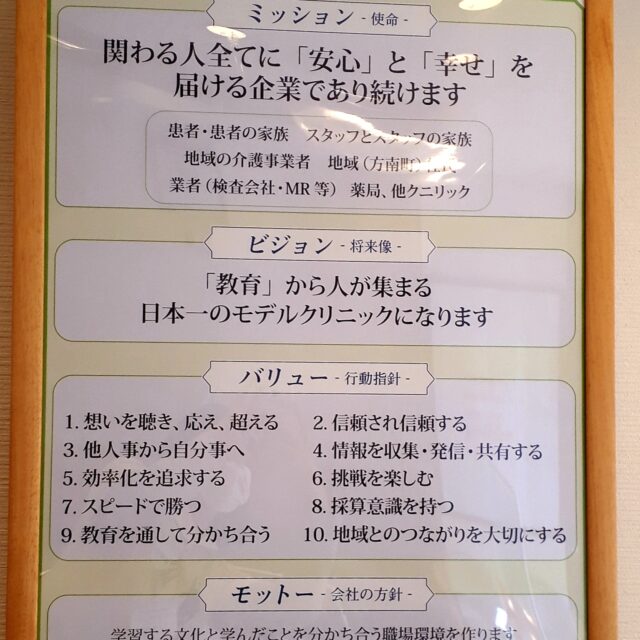 ミッション - 使命 -
関わる人全てに「安心」と「幸せ」を
届ける企業であり続けます
患者・患者の家族　スタッフとスタッフの家族
地域の介護事業者　地域（方南町）住民
業者（検査会社・MR等）　薬局、他クリニック
ビジョン - 将来像 -
「教育」から人が集まる
日本一のモデルクリニックになります
バリュー - 行動指針 -
1. 想いを聴き、応え、超える　2. 信頼され信頼する
3. 他人事から自分事へ　4. 情報を収集・発信・共有する
5. 効率化を追求する　6. 挑戦を楽しむ
7. スピードで勝つ　8. 採算意識を持つ
9. 教育を通して分かち合う　10. 地域とのつながりを大切にする
モットー - 会社の方針 -
学習する文化と学んだことを分かち合う職場環境を作ります